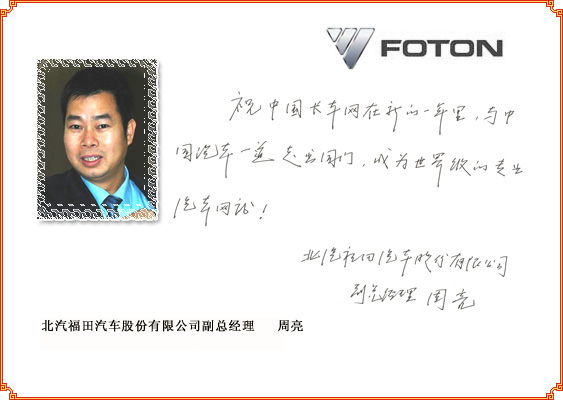 FOTON
祝中国卡车网在新的一年里，与中
国汽车一道走出国门，成为世界级的专业
汽车网站！
北汽福田汽车股份有限公司
副总经理 周亮
北汽福田汽车股份有限公司副总经理 周亮